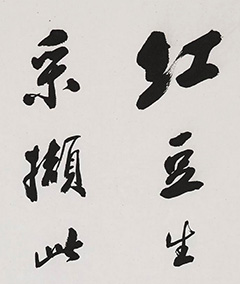 红豆生
采撷此